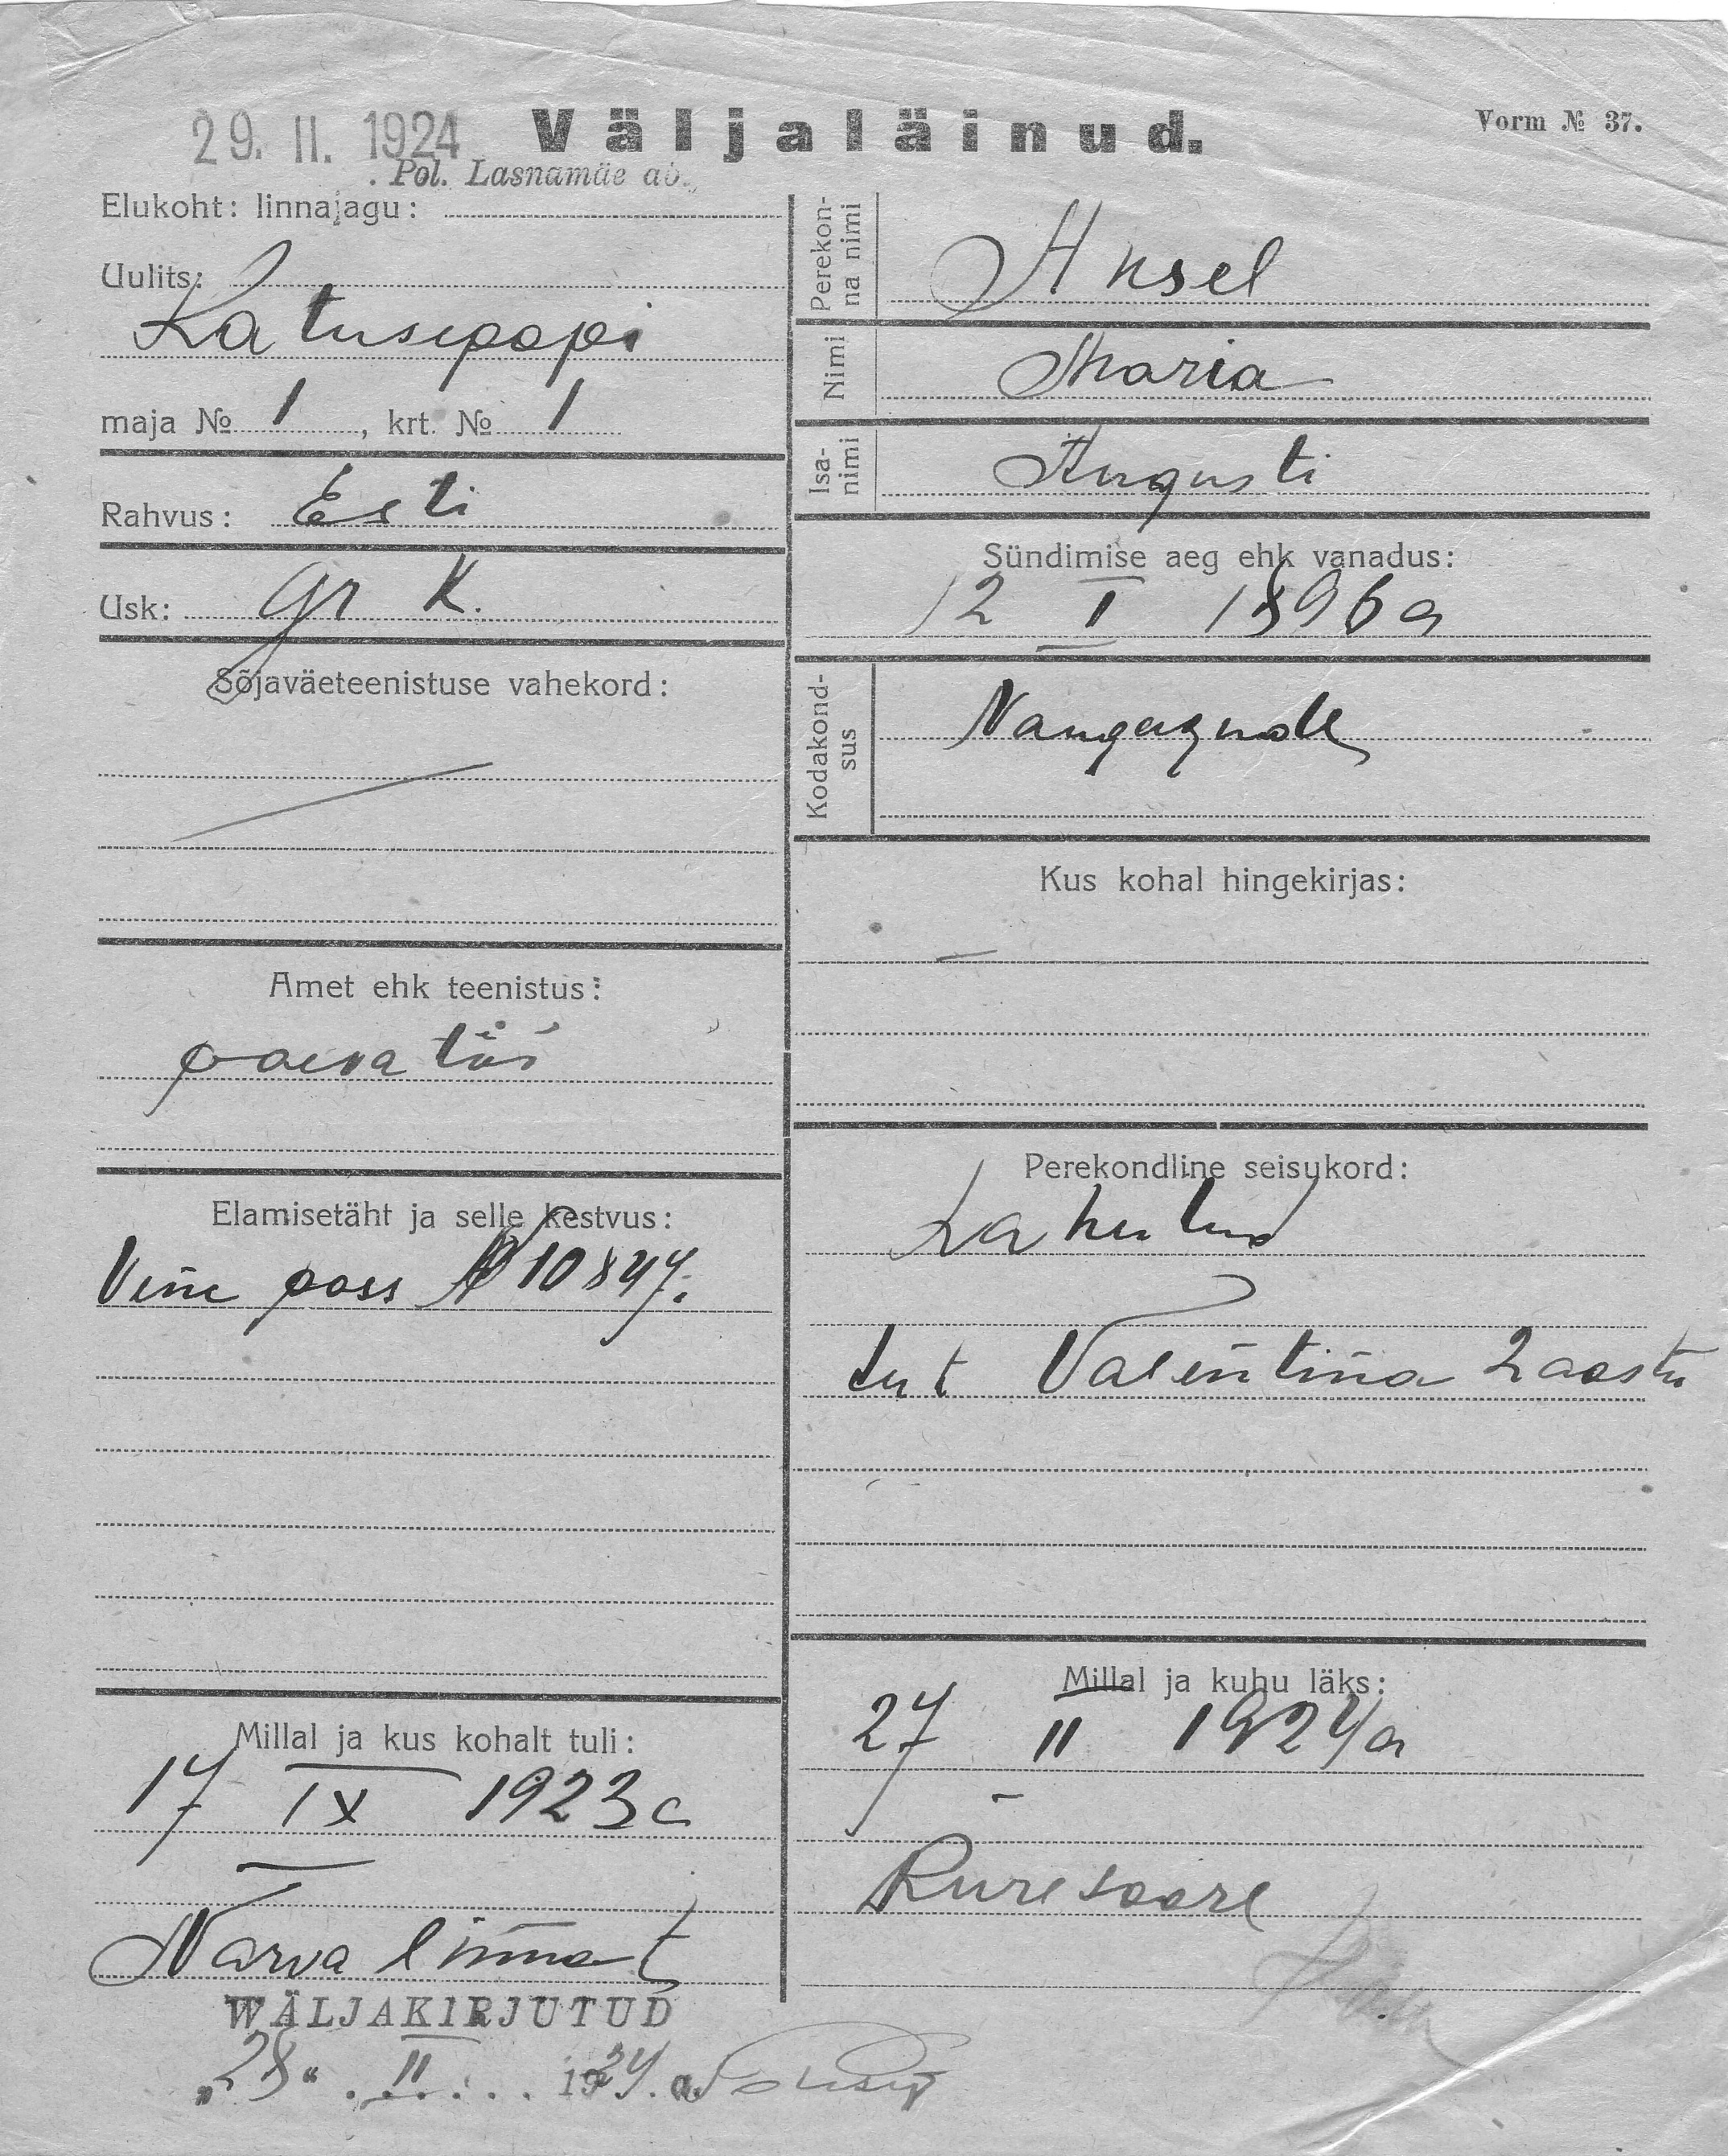 29. II. 1924
Väljaläinud.
Vorm № 37.
Pol. Lasnamäe ab.
Elukoht: linnajagu:
Uulits:
Katusepapi
maja № 1, krt. № 1
Rahvus: Esti
Usk: gr K.
Sõjaväeteenistuse vahekord:
Amet ehk teenistus:
paeva töö
Elamisetäht ja selle kestvus:
Vene pass № 10847.
Millal ja kus kohalt tuli:
17 IX 1923 a
Narva linnast
WÄLJAKIRJUTUD
„28“ II 1924. a.
Perekonna nimi
Ansel
Nimi
Maria
Isanimi
Augusti
Sündimise aeg ehk vanadus:
12 I 1896 a
Kodakondsus
Kus kohal hingekirjas:
Perekondline seisukord:
Lahutud
tut Valentina 2 aasta
Millal ja kuhu läks:
27 II 1924 a
Kuresaare